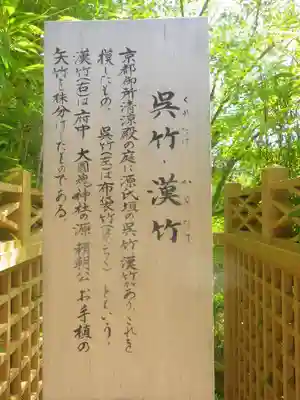 呉竹・漢竹
くれたけ かわたけ
京都御所清涼殿の庭に源氏垣の呉竹漢竹があり、これを
模したもの。呉竹(左)は布袋竹(ほてい
ちく)ともいう。
漢竹(右)は府中 大國魂神社の源 頼朝公 お手植の
矢竹を株分けしたものである。